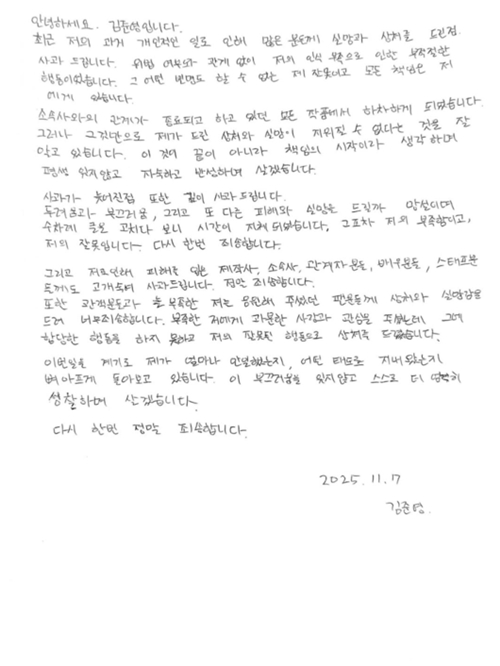 안녕하세요. 김준영입니다.
최근 저의 과거 개인적인 일로 인해 많은 분들께 실망과 상처를 드린점
사과 드립니다. 위법 여부와 관계 없이 저의 인식 부족으로 인한 부적절한
행동이었습니다. 그 어떤 변명도 할 수 없는 제 잘못이고 모든 책임은 저
에게 있습니다.
소속사와의 관계가 종료되고 하고 있던 모든 작품에서 하차하게 되었습니다.
그러나 그것만으로 제가 드린 상처와 실망이 지워질 수 없다는 것을 잘
알고 있습니다. 이 것이 끝이 아니라 책임의 시작이라 생각하며
평생 잊지않고 자숙하고 반성하며 살겠습니다.
사과가 늦어진점 또한 깊이 사과드립니다.
두려움과 부끄러움, 그리고 또 다른 피해와 실망을 드릴까 망설이며
수차례 글을 고치다 보니 시간이 지체 되었습니다. 그조차 저의 부족함이고,
저의 잘못입니다. 다시 한번 죄송합니다.
그리고 저로인해 피해를 입은 제작사, 소속사, 관계자분들, 배우분들, 스태프분
들께도 고개숙여 사과드립니다. 정말 죄송합니다.
또한 관객분들과 부족한 저를 응원해 주셨던 팬분들께 상처와 실망감을
드려 너무죄송합니다. 부족한 저에게 과분한 사랑과 관심을 주셨는데 그에
합당한 행동을 하지 못하고 저의 잘못된 행동으로 상처를 드렸습니다.
이번일을 계기로 제가 얼마나 안일했는지, 어떤 태도로 지내왔는지
뼈아프게 돌아보고 있습니다. 이 부끄러움을 잊지않고 스스로 더
성찰하며 살겠습니다.
다시 한번 정말 죄송합니다.
2025.11.7
김준영.